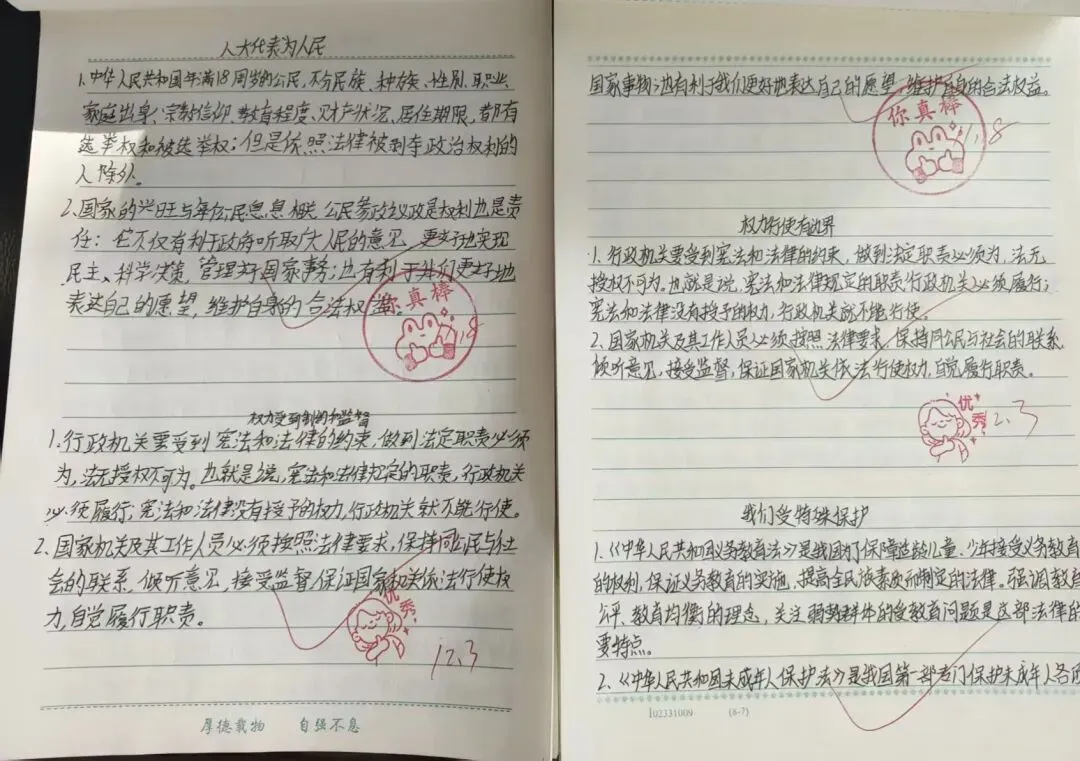 人大代表为人民
1.中华人民共和国年满18周岁的公民,不分民族、种族、性别、职业、
家庭出身、宗教信仰、教育程度、财产状况、居住期限,都有
选举权和被选举权;但是依照法律被剥夺政治权利的
人除外。
2.国家的兴旺与每位公民息息相关,公民参政议政是权利也是责
任:它不仅有利于政府听取广大人民的意见,更好地实现
民主、科学决策,管理好国家事务;也有利于我们更好地
表达自己的愿望,维护自身的合法权益。
你真棒
1.8
权力受到制约和监督
1.行政机关要受到宪法和法律的约束,做到法定职责必须
为,法无授权不可为。也就是说,宪法和法律规定的职责,行政机关
必须履行;宪法和法律没有授予的权力,行政机关就不能行使。
2.国家机关及其工作人员必须按照法律要求,保持同公民与社
会的联系,倾听意见,接受监督,保证国家机关依法行使权
力,自觉履行职责。
优秀
12.3
厚德载物 自强不息
国家事物;也有利于我们更好地表达自己的愿望,维护自身的合法权益。
你真棒
1.8
权力行使有边界
1.行政机关要受到宪法和法律的约束,做到法定职责必须为,法无
授权不可为。也就是说,宪法和法律规定的职责行政机关必须履行;
宪法和法律没有授予的权力,行政机关就不能行使。
2.国家机关及其工作人员必须按照法律要求,保持同公民与社会的联系,
倾听意见,接受监督,保证国家机关依法行使权力,自觉履行职责。
优秀
12.3
我们受特殊保护
1.《中华人民共和国义务教育法》是我国为了保障适龄儿童、少年接受义务教育
的权利,保证义务教育的实施、提高全民族素质而制定的法律。强调教育
公平、教育均衡的理念,关注弱势群体的受教育问题是这部法律的
要特点。
2、《中华人民共和国未成年人保护法》是我国第一部专门保护未成年人各
102331009 (8-7)